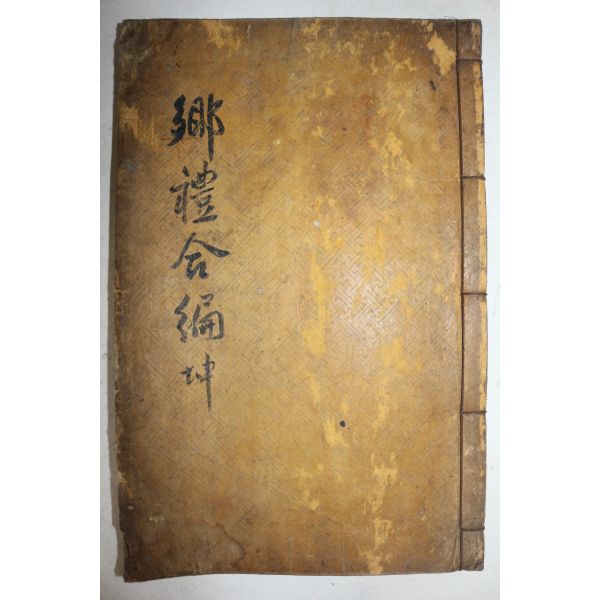 鄕禮合編 坤